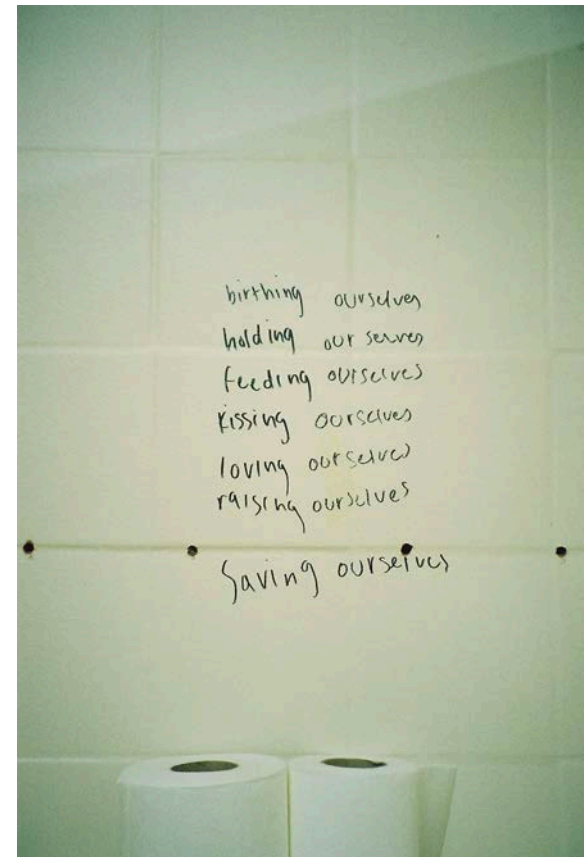 birthing ourselves
holding ourselves
feeding ourselves
kissing ourselves
loving ourselves
raising ourselves
Saving ourselves